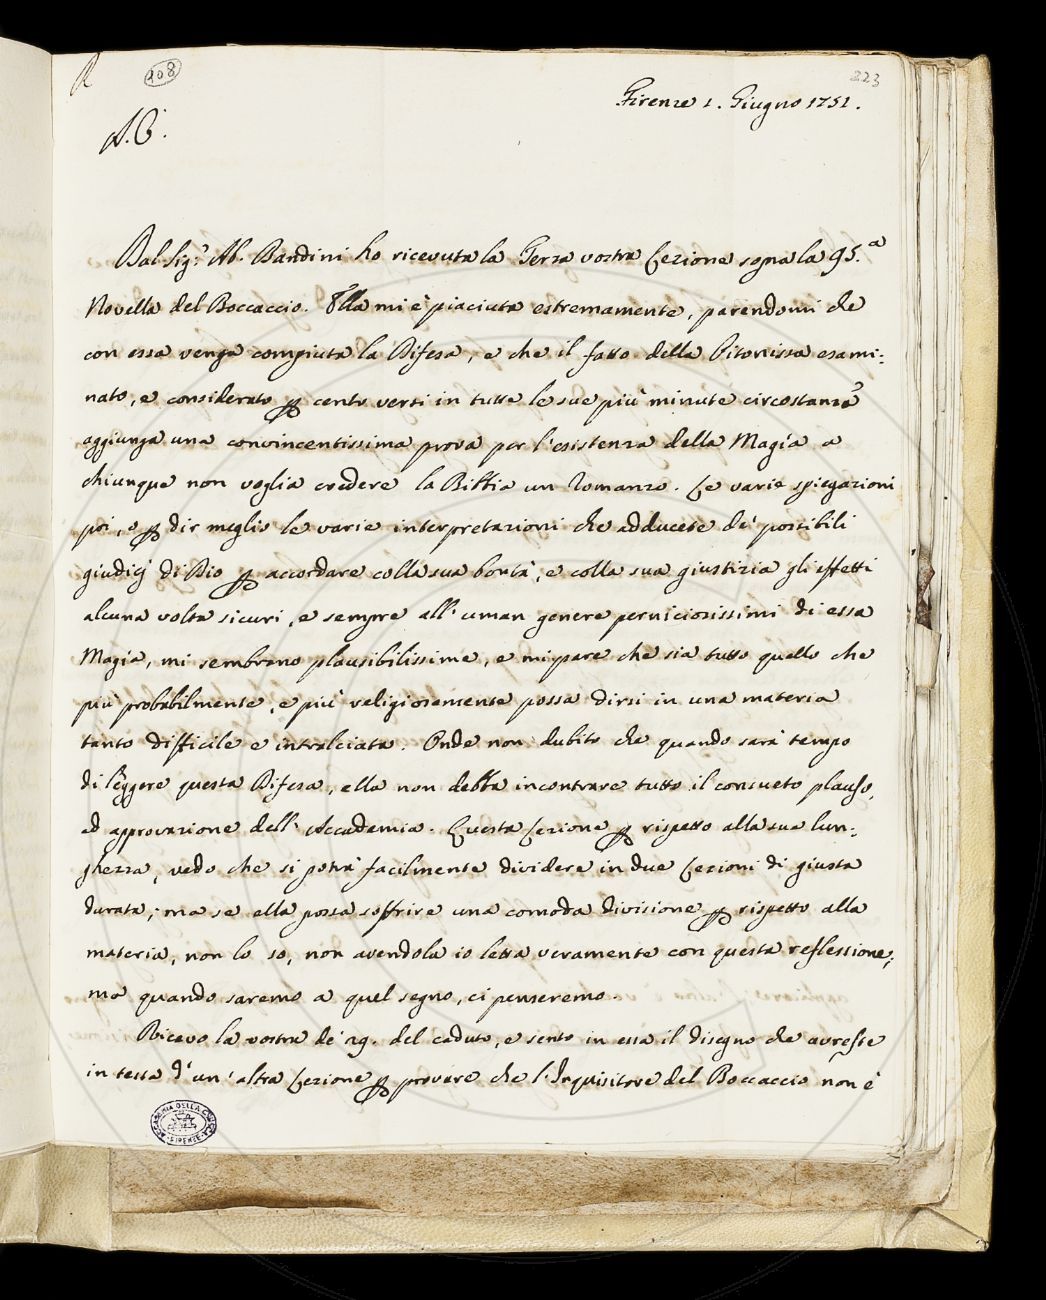 R
208
223
Firenze 1. Giugno 1751.
A. C.
Dal Sig.r Ab. Bandini ho ricevuta la Terza vostra Lezione sopra la 95.a
Novella del Boccaccio. Ella mi è piaciuta estremamente, parendomi che
con essa venga compiuta la Difesa, e che il fatto della Pitonissa esami:
nato, e considerato p cento versi in tutte le sue più minute circostanze
aggiunga una convincentissima prova per l'esistenza della Magia a
chiunque non voglia credere la Bibbia un Romanzo. Le varie spiegazioni
poi, o p dir meglio le varie interpretazioni che adducete de' possibili
giudicj di Dio p accordare colla sua bontà, e colla sua giustizia gli effetti
alcuna volta sicuri, e sempre all'uman genere perniciosissimi di essa
Magia, mi sembrano plausibilissime, e mi pare che sia tutto quello che
più probabilmente, e più religiosamente possa dirsi in una materia
tanto difficile e intralciata. Onde non dubito che quando sarà tempo
di leggere questa Difesa, ella non debba incontrare tutto il consueto plauso,
ed approvazione dell'Accademia. Questa Lezione p rispetto alla sua lun:
ghezza, vedo che si potrà facilmente dividere in due Lezioni di giusta
durata; ma se ella possa soffrire una comoda divisione p rispetto alla
materia, non lo so, non avendola io letta veramente con questa reflessione;
ma quando saremo a quel segno, ci penseremo.
Ricevo la vostra de' 29. del caduto, e sento in essa il disegno che avreste
in testa d'un'altra Lezione p provare che l'Inquisitore del Boccaccio non è
ACCADEMIA DELLA CRUSCA
FIRENZE